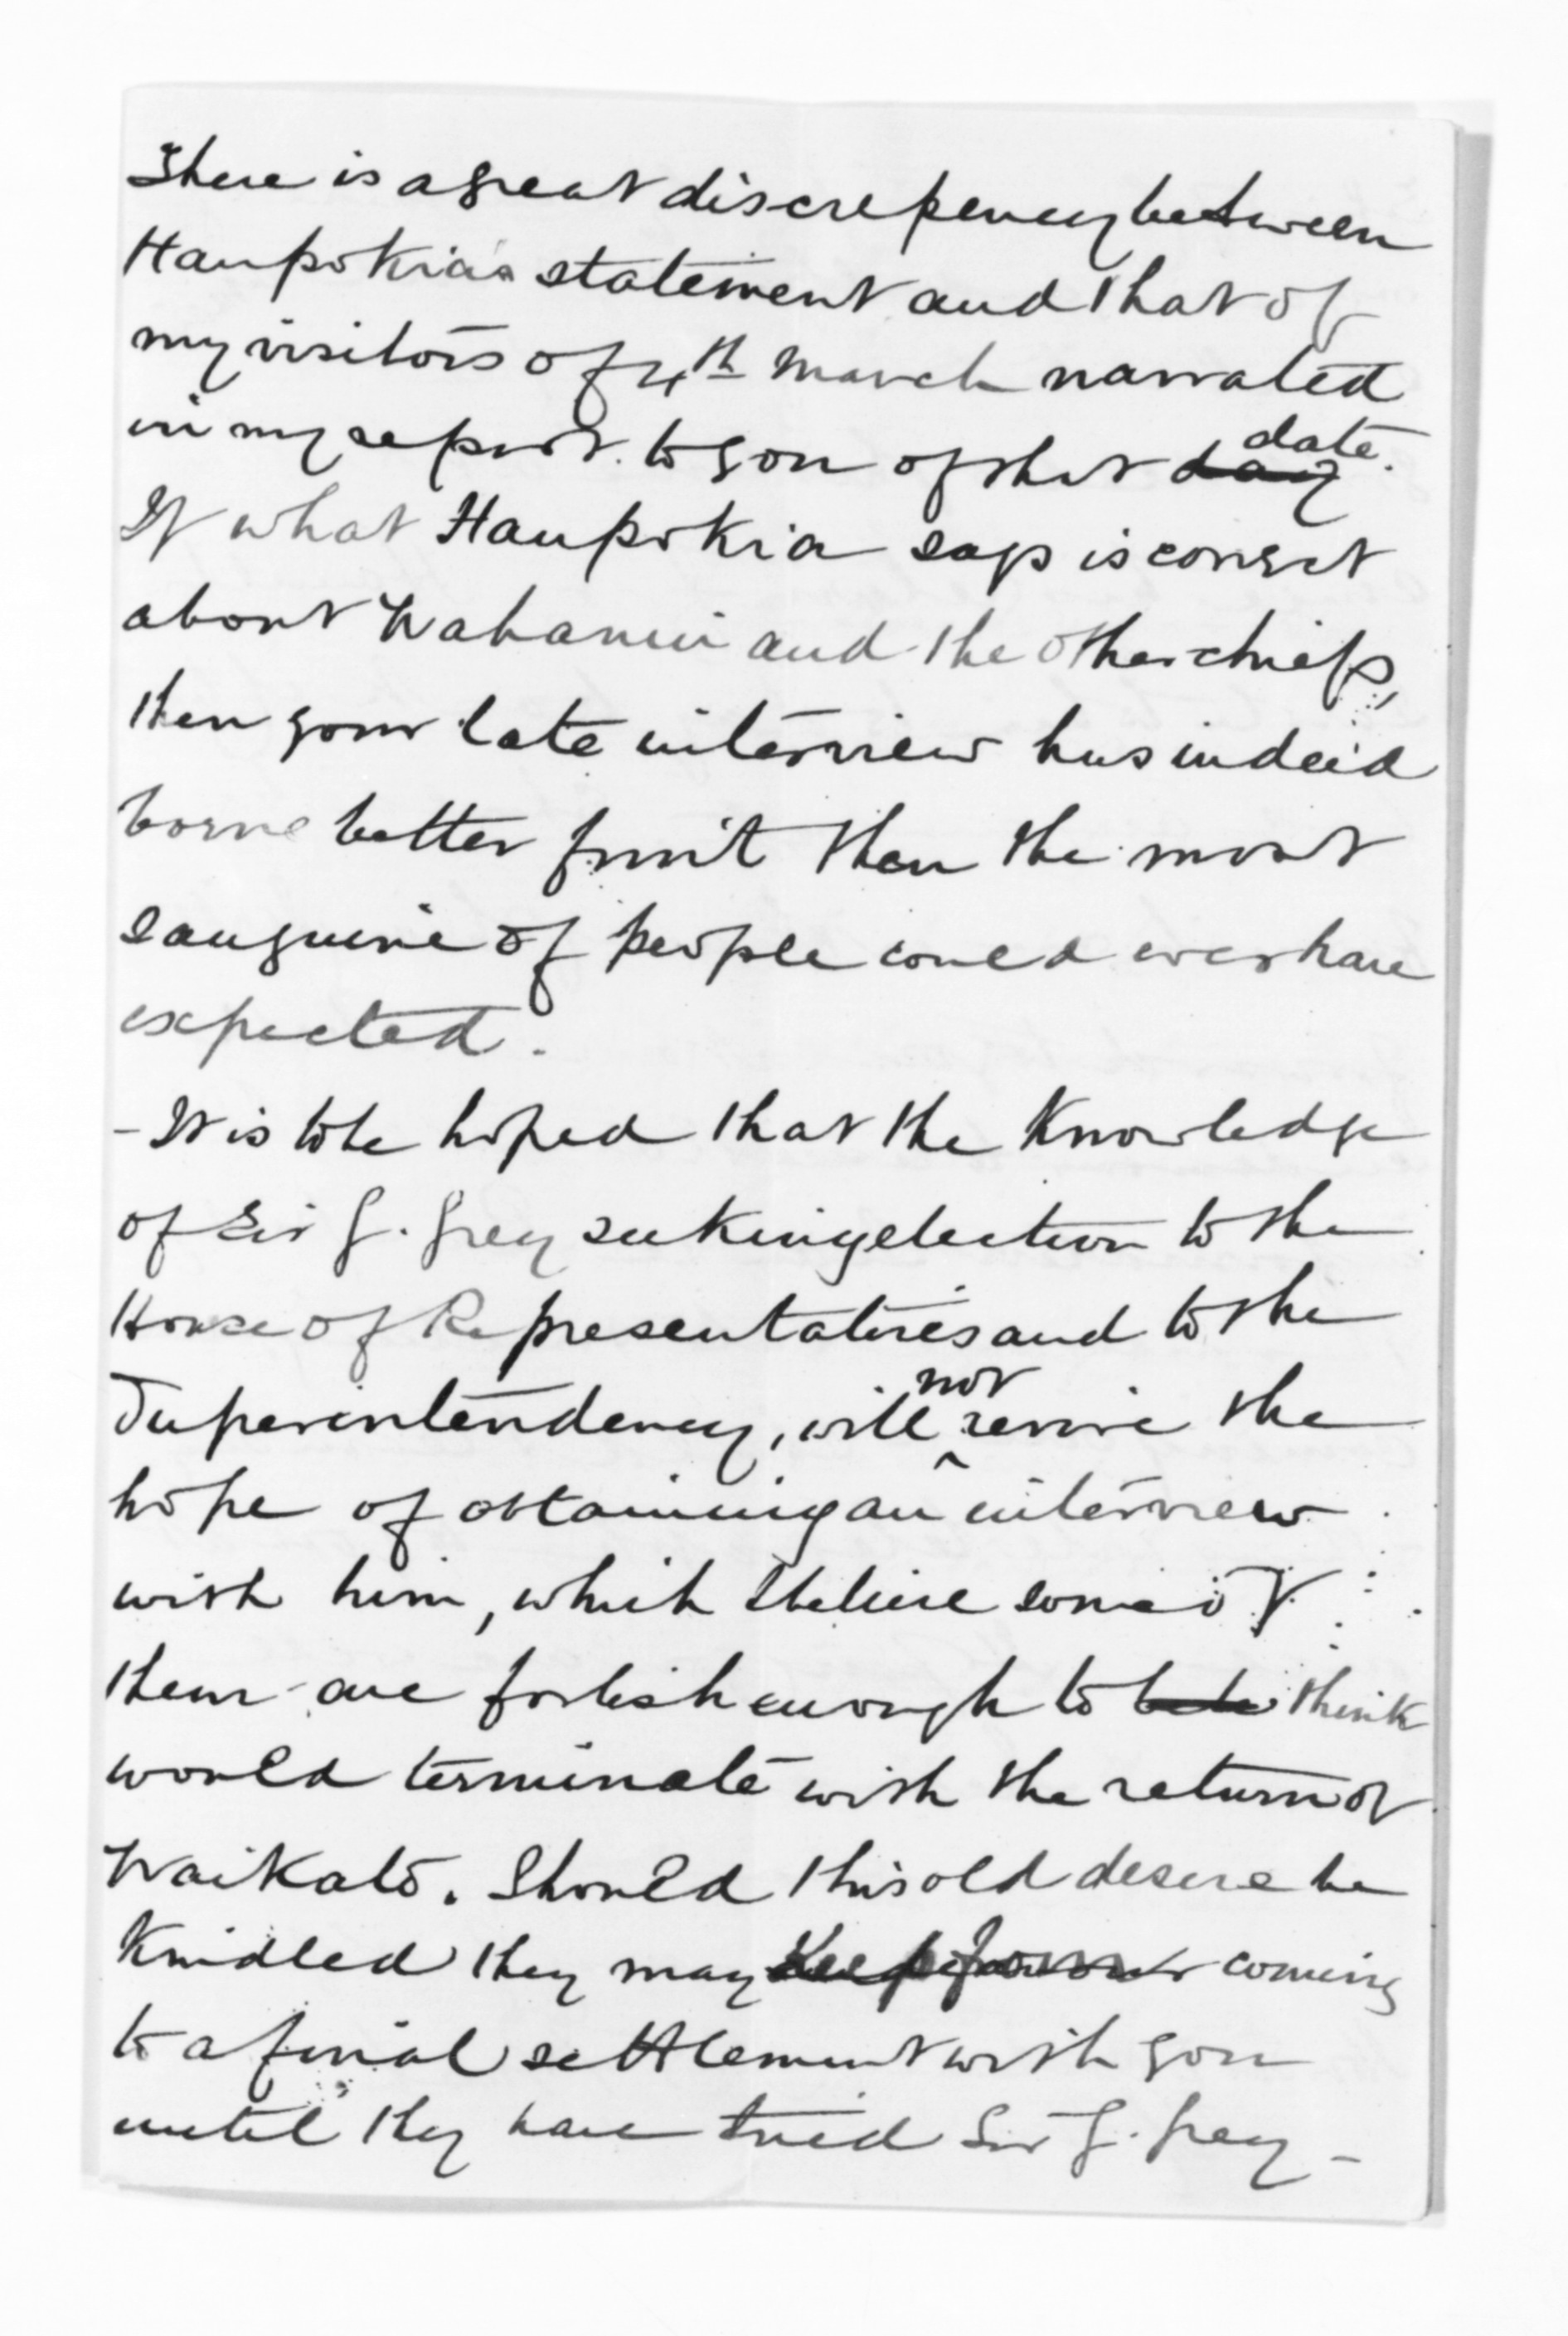 There is a great discrepency between
Haupokia's statement and that of
my visitors of 4th March narrated
in my report to you of that day date.
If what Haupokia says is correct
about Wahanui and the other chiefs,
then your late interview has indeed
borne better fruit than the most
sanguine of people could ever have
expected.
- It is to be hoped that the Knowledge
of Sir G. Grey seeking election to the
House of Representatives and to the
Superintendency, will not revive the
hope of obtaining an interview
with him, which I believe some of
them are foolish enough to think
would terminate with the return of
Waikato. Should this old desire be
Kindled they may keep from coming
to a final settlement with you
until they have tried Sir G. Grey -